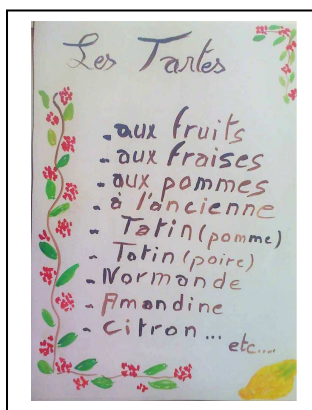 Les Tartes
- aux fruits
- aux fraises
- aux pommes
- à l'ancienne
- Tatin (pomme)
- Tatin (poire)
- Normande
- Amandine
- Citron...
etc....